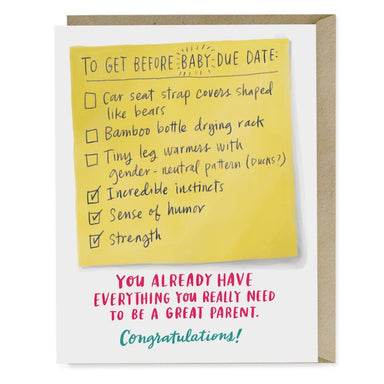 TO GET BEFORE BABY DUE DATE:
Car seat strap covers shaped
like bears
Bamboo bottle drying rack
Tiny leg warmers with
gender-neutral pattern (DUCKS?)
Incredible instincts
Sense of humor
Strength
YOU ALREADY HAVE
EVERYTHING YOU REALLY NEED
TO BE A GREAT PARENT.
Congratulations!